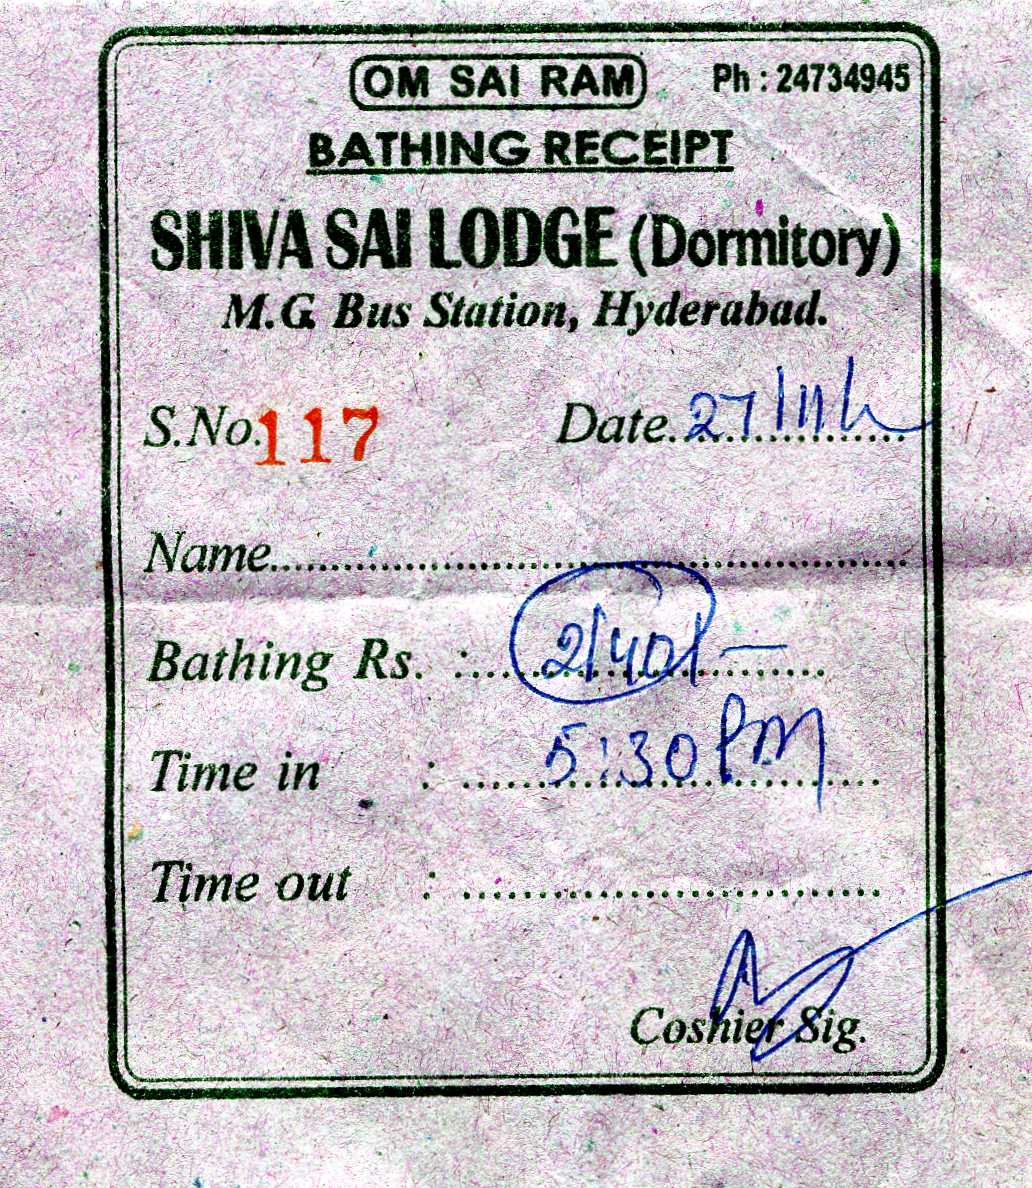 OM SAI RAM Ph : 24734945
BATHING RECEIPT
SHIVA SAI LODGE (Dormitory)
M.G. Bus Station, Hyderabad.
S.No. 117 Date. 27/11/
Name
Bathing Rs. : 2/40/-
Time in : 5:30 PM
Time out :
Coshier Sig.